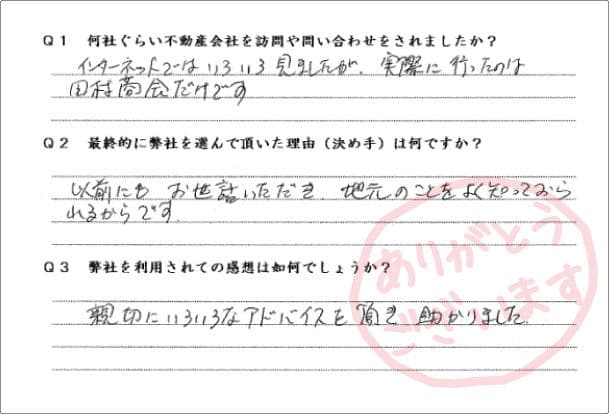 Q1 何社ぐらい不動産会社を訪問や問い合わせをされましたか？
インターネットではいろいろ見ましたが、実際に行ったのは
田村商会だけです
Q2 最終的に弊社を選んで頂いた理由（決め手）は何ですか？
以前にも お世話いただき 地元のことをよく知っておら
れるからです
Q3 弊社を利用されての感想は如何でしょうか？
親切にいろいろなアドバイスを頂き 助かりました
ありがとう
ございます